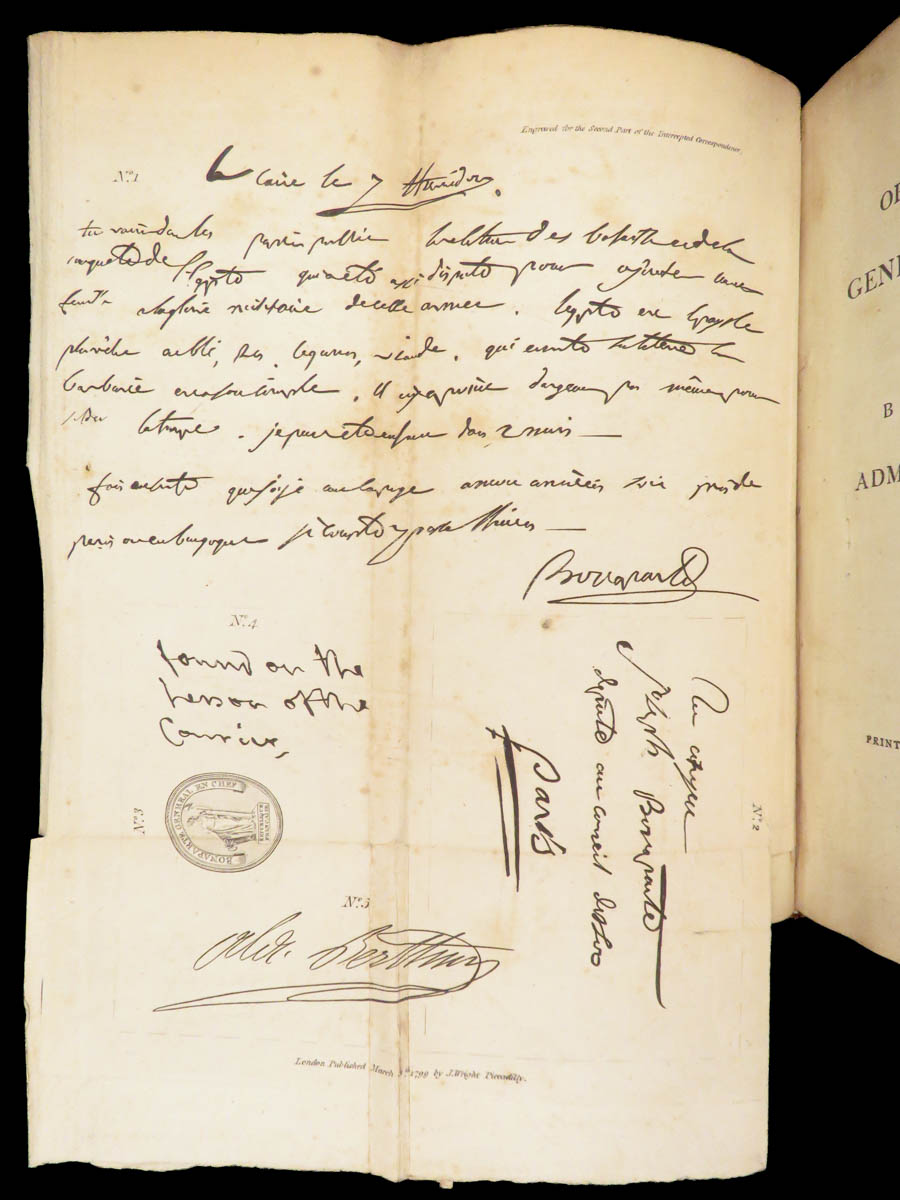 Engraved for the Second Part of the Intercepted Correspondence.
No. 1
le Caire le 7 Thermidor
tu verra dans les papiers public la relation des batailles et de la
conquete de l'Egypte qui a eté assé disputé pour ajouter une
feuille a la gloire militaire de cette armée. l'egypte est le pays le
plus riche en blé, ris, legumes, viande, qui existe sur la terre la
barbarie est a son comble. il n'y a point d'argent pas même pour
la troupe. je pense etre en france dans 2 mois
fais en sorte que j'aye une campagne a mon arrivée soit près de
paris ou en bourgogne je compte y passer l'hiver
Bonaparte
No. 4
found on the
Person of the
Courier,
No. 3
BONAPARTE GENERAL EN CHEF
No. 2
Au citoyen
Joseph Bonaparte
deputé au conseil des 500
Paris
No. 5
Alex. Berthier
London Published March 8th 1799 by J. Wright Piccadilly.
OF
GENE
B
ADM
PRINT